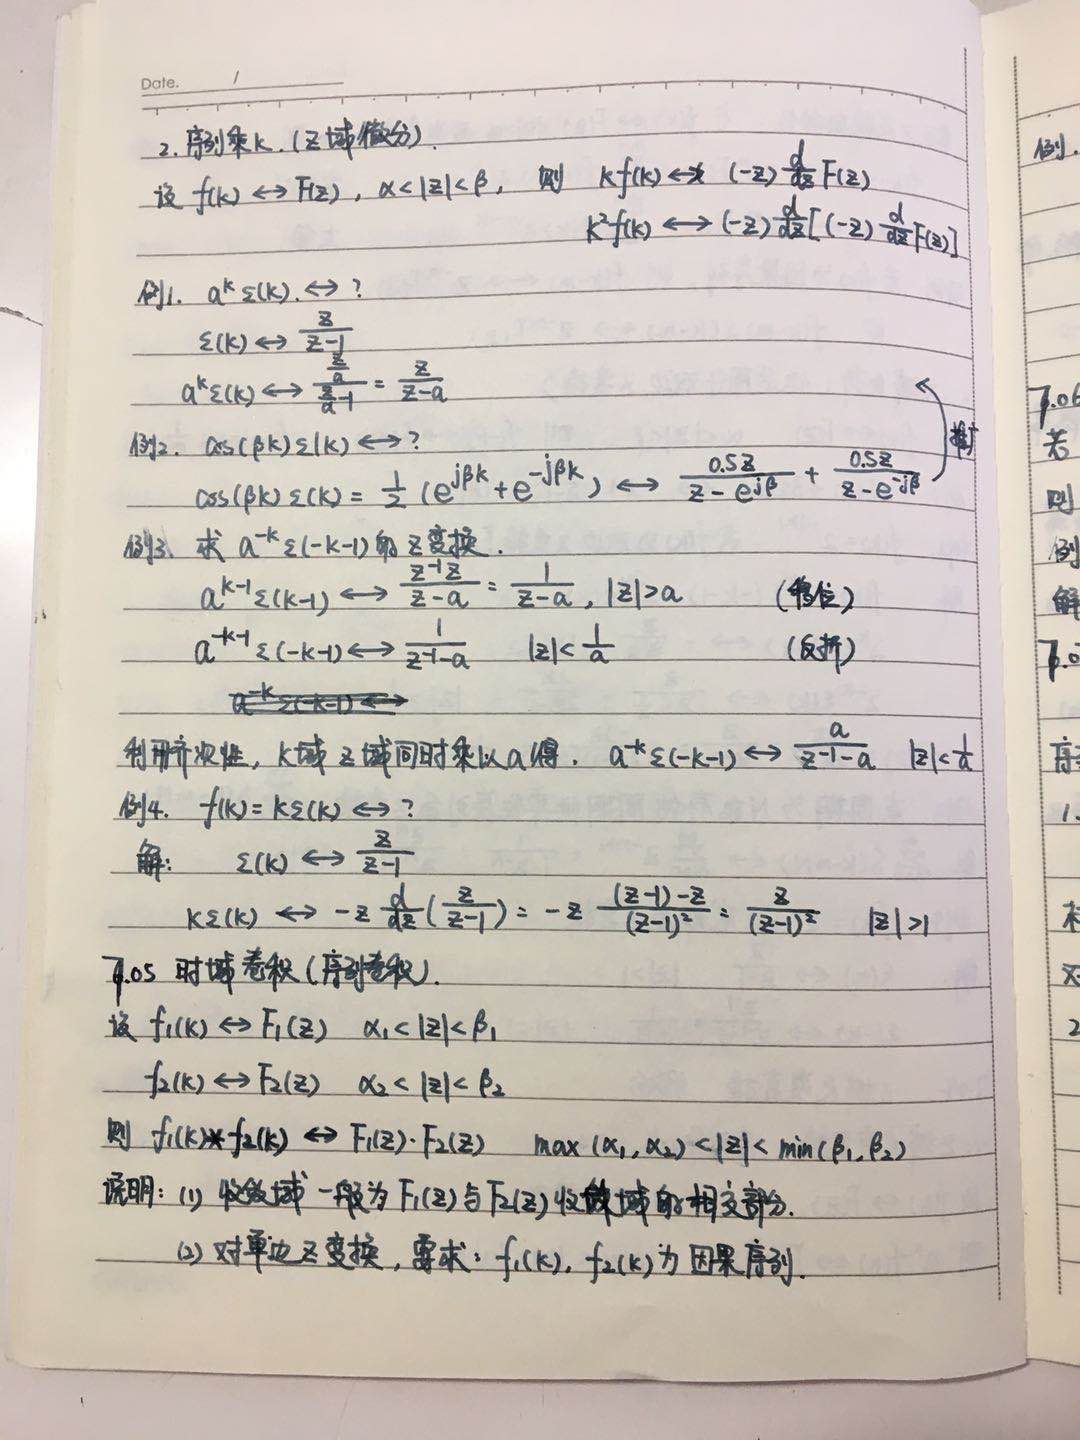 Date. /
2. 序列乘k.(z域微分).
设 f(k)↔F(z), α<|z|<β, 则 kf(k)↔ (-z) d/dz F(z)
k²f(k)↔(-z) d/dz [(-z) d/dz F(z)]
例1. aᵏε(k).↔?
ε(k)↔ z/(z-1)
aᵏε(k)↔ (z/a)/(z/a -1) = z/(z-a)
例2. cos(βk)ε(k)↔?
推广
cos(βk)ε(k) = 1/2 (e^{jβk}+e^{-jβk}) ↔ 0.5z/(z-e^{jβ}) + 0.5z/(z-e^{-jβ})
例3. 求 a^{-k}ε(-k-1)的z变换.
a^{k-1}ε(k-1) ↔ z⁻¹z/(z-a) = 1/(z-a), |z|>a (移位)
a^{-k-1}ε(-k-1)↔ 1/(z⁻¹-a) |z|<1/a (反折)
a^{-k}ε(-k-1)↔
利用齐次性, k域z域同时乘以a得. a^{-k}ε(-k-1)↔ a/(z⁻¹-a) |z|<1/a
例4. f(k)=kε(k)↔?
解: ε(k)↔ z/(z-1)
kε(k) ↔ -z d/dz (z/(z-1)) = -z ((z-1)-z)/(z-1)² = z/(z-1)² |z|>1
7.05 时域卷积(序列卷积).
设 f₁(k)↔F₁(z) α₁<|z|<β₁
f₂(k)↔F₂(z) α₂<|z|<β₂
则 f₁(k)*f₂(k) ↔ F₁(z)·F₂(z) max(α₁,α₂)<|z|<min(β₁,β₂)
说明:(1) 收敛域一般为F₁(z)与F₂(z)收敛域的相交部分.
(2) 对单边z变换,要求: f₁(k), f₂(k)为因果序列.
例.
7.06
若
则
例
解
7.0
序
1.
对
2